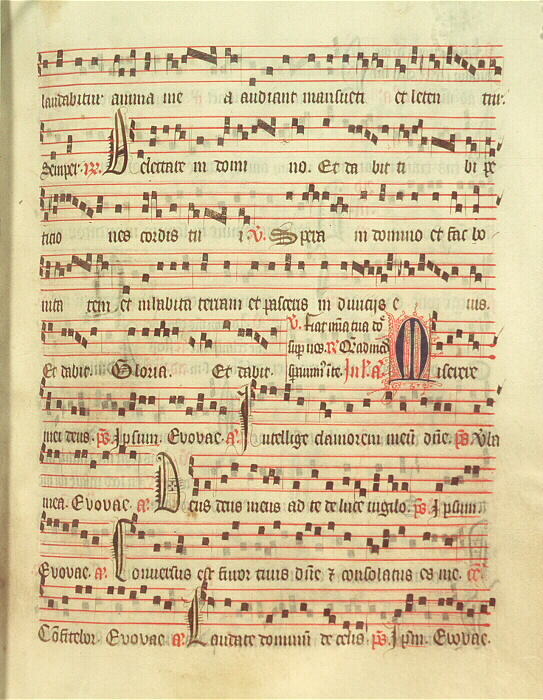 laudabitur anima me a audiant mansueti et leten tur.
Semper. R. Delectare in domi no. Et da bit ti bi pe
ticio nes cordis tu i. V. Spera in domino et fac bo
nita tem et inhabita terram et pasceris in divicijs e ius.
Et dabit. Gloria. Et dabit.
V. Fiat mīa tua dō
sup nos. R. Qēadmō
In l. a. Miserere
mei deus. ps. Ipsum. Evovae. a. Intellige clamorem meū dñe. ps.
mea. Evovae. a. Deus deus meus ad te de luce vigilo. ps. Ipsum.
Evovae. a. Conversus est furor tuus dñe ⁊ consolatus es me.
Cōfitebor. Evovae a. Laudate dominū de celis. ps. Ipm. Evovae.